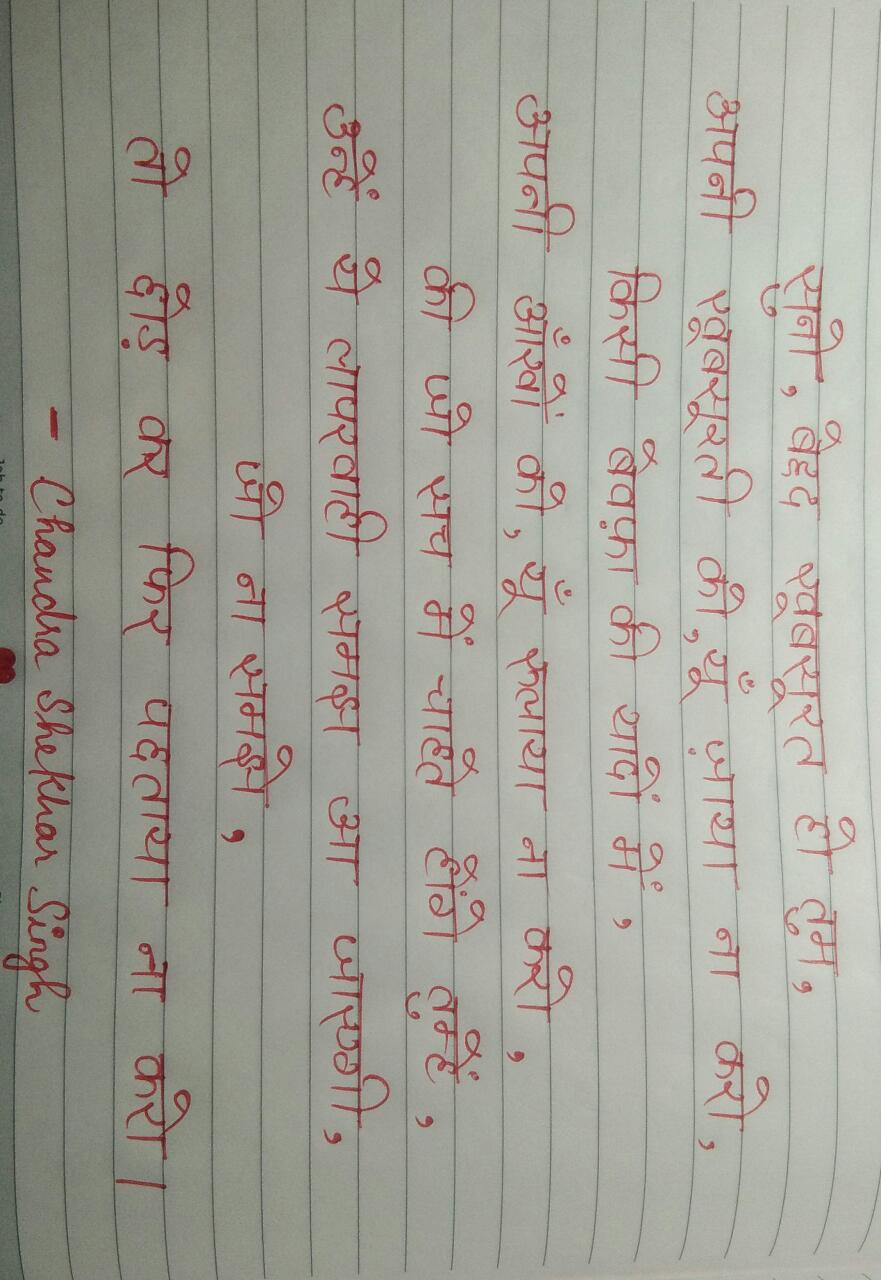 सुनो, बेहद खूबसूरत हो तुम,
अपनी खूबसूरती को, यूँ ज़ाया ना करो,
किसी बेवफ़ा की यादों में,
अपनी आँखों को, यूँ रुलाया ना करो,
की जो सच में चाहते होंगे तुम्हें,
उन्हें ये लापरवाही समझ आ जाएगी,
जो ना समझे,
तो छोड़ कर फिर पछताया ना करो।
- Chandra Shekhar Singh